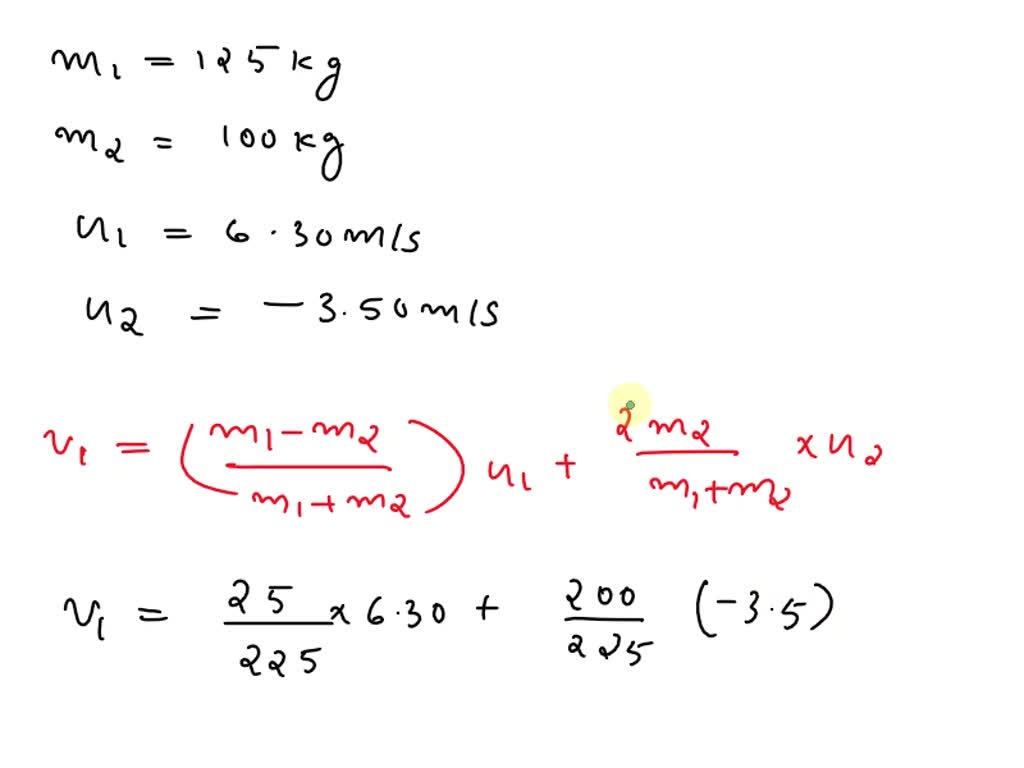 m₁ = 125 kg
m₂ = 100 kg
u₁ = 6.30 m/s
u₂ = -3.50 m/s
v₁ = ((m₁ - m₂)/(m₁ + m₂)) u₁ + (2m₂/(m₁ + m₂)) × u₂
v₁ = 25/225 × 6.30 + 200/225 (-3.5)